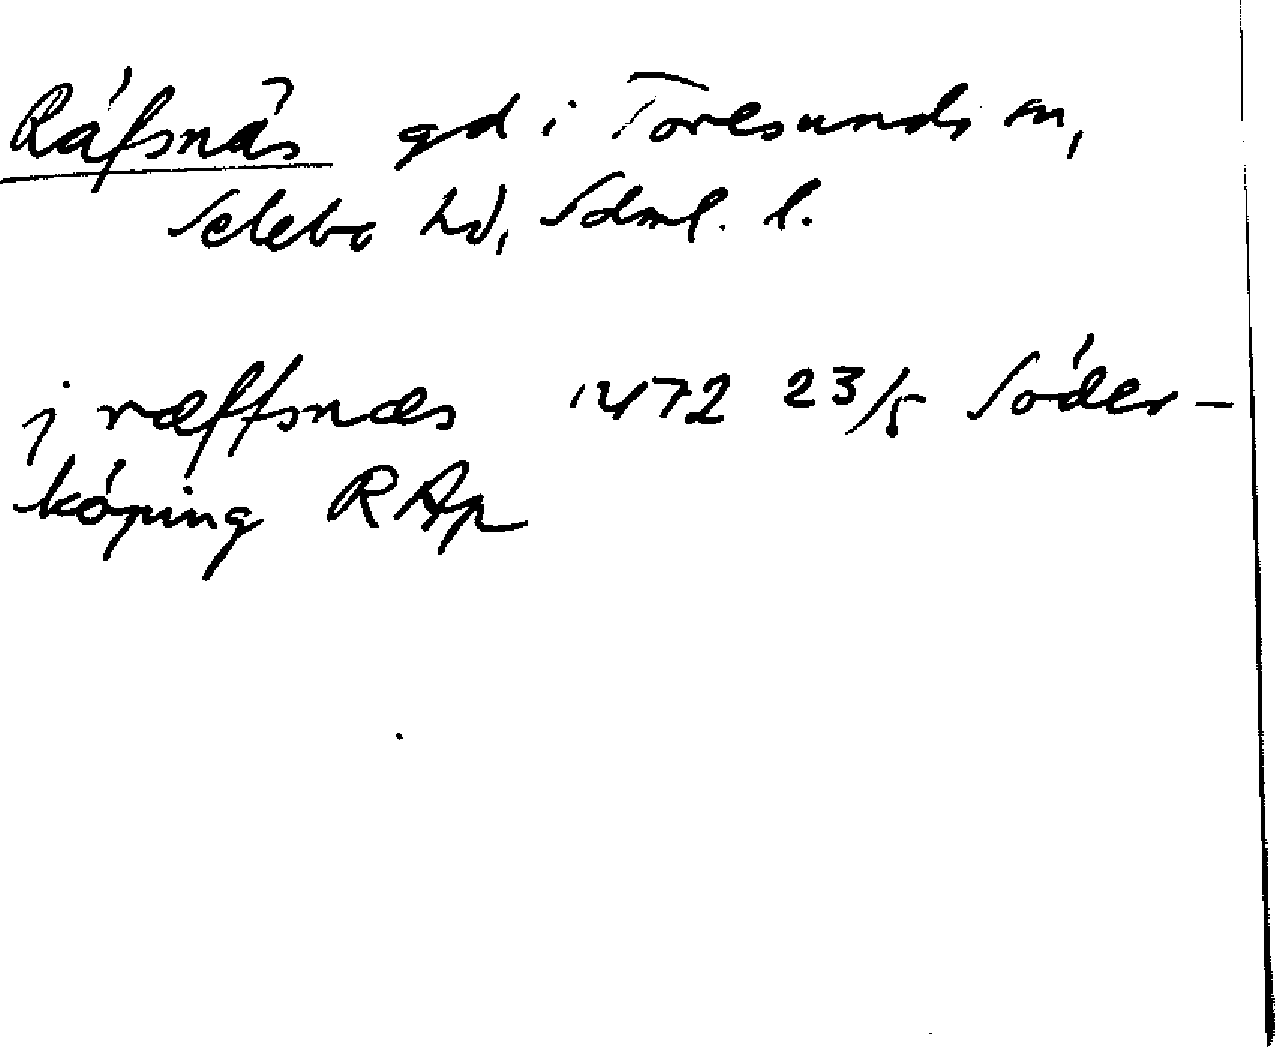 Räfsnäs gd i Toresunds sn,
Selebo hd, Sdml. l.
j ræffsnæs 1472 23/5 Söder-
köping RAp